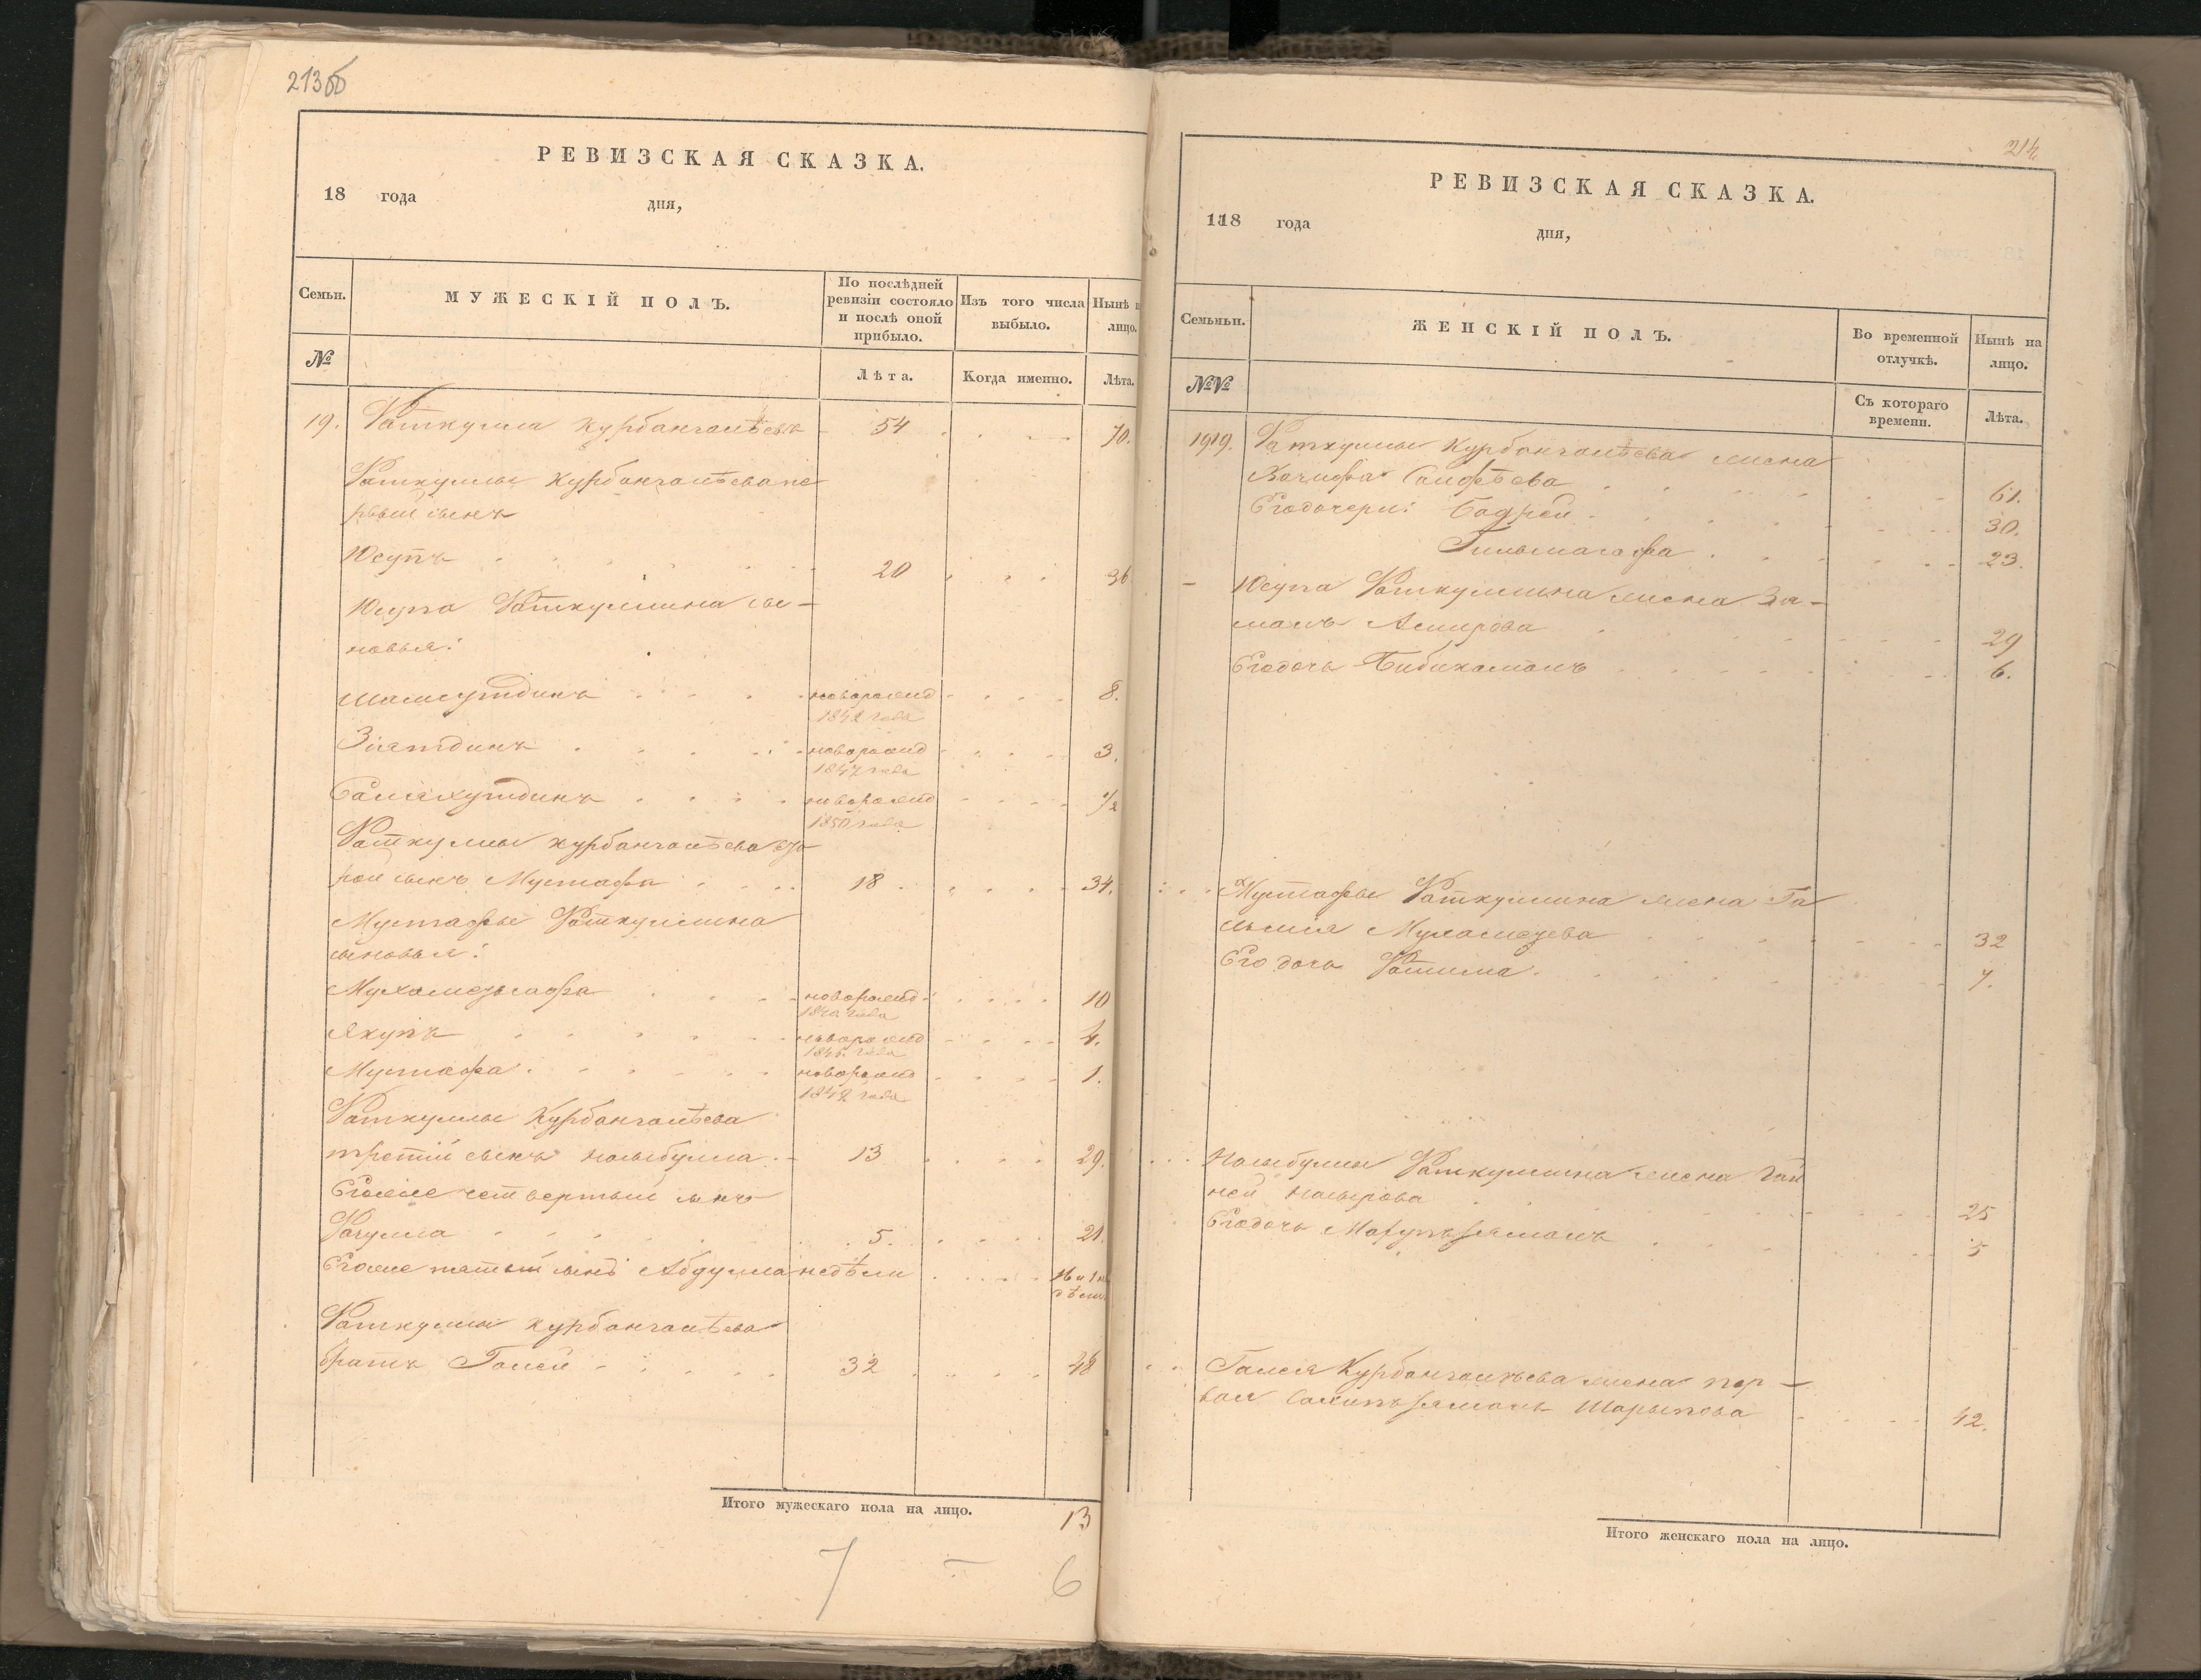 213об
РЕВИЗСКАЯ СКАЗКА.
18 года дня,
Семьи. МУЖЕСКІЙ ПОЛЪ. По послѣдней ревизіи состояло и послѣ оной прибыло. Изъ того числа выбыло. Нынѣ н лицо.
№ Лѣта. Когда именно. Лѣта.
19. Фаткулла Курбангалѣевъ 54 70.
Фаткуллы Курбангалѣева пе
рвый сынъ
Юсупъ 20 36
Юсупа Фаткуллина сы-
новья:
Шамсутдинъ новорожд 8.
1842 года
Зіятдинъ новорожд 3.
1847 года
Салахутдинъ новорожд 1/2
1850 года
Фаткуллы Курбангалѣева вто
рой сынъ Мустафа 18 34.
Мустафы Фаткуллина
сыновья:
Мухаметсафа новорожд 10
1840 года
Якупъ новорожд 4.
1846 года
Мустафа новорожд 1.
1849 года
Фаткуллы Курбангалѣева
третій сынъ Насыбулла 13 29.
Егоже четвертый сынъ
Фагулла 5. 21.
Егоже пятый сынъ Абдулла недѣли 16 и 1 не
дѣли.
Фаткуллы Курбангалѣева
братъ Галей 32 48
Итого мужескаго пола на лицо. 13
7 - 6
214
РЕВИЗСКАЯ СКАЗКА.
18 года дня,
Семьи. ЖЕНСКІЙ ПОЛЪ. Во временной отлучкѣ. Нынѣ на лицо.
№ Съ котораго времени. Лѣта.
19. Фаткуллы Курбангалѣева жена
Сайфѣева 61.
Егодочери: Бадрей 30.
23.
- Юсупа Фаткуллина жена За-
малъ Амирова 29
Егодочь Бибикамалъ 6.
Мустафы Фаткуллина жена Га
Мухаметева 32
Его дочь Фатима. 7.
Насыбуллы Фаткуллина жена Гай
ней Насырова 25
Егодочь Марупъзямалъ 5
Галея Курбангалѣева жена пер-
вая Салипъзямалъ Шарыпова 42.
Итого женскаго пола на лицо.